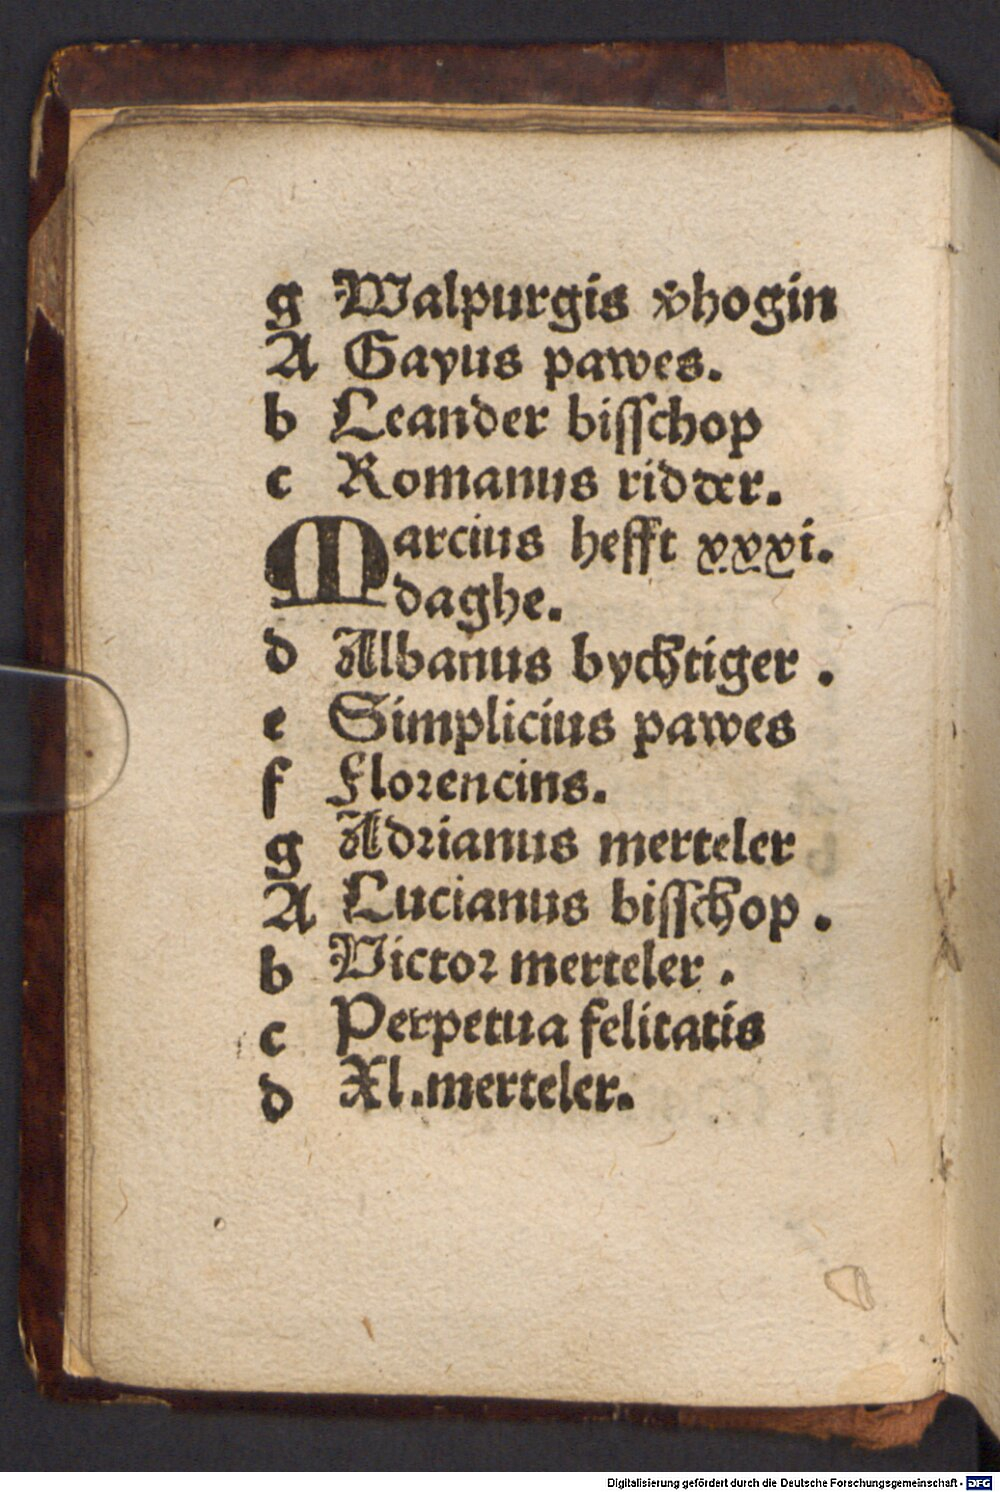 g Walpurgis vͦhogin
A Gayus pawes.
b Leander bisschop
c Romanus ridder.
Marcius hefft xxxi.
daghe.
d Albanus bychtiger .
e Simplicius pawes
f Florencins.
g Adrianus merteler
A Lucianus bisschop .
b Victor merteler .
c Perpetua felitatis
d Xl.merteler.
Digitalisierung gefördert durch die Deutsche Forschungsgemeinschaft - DFG